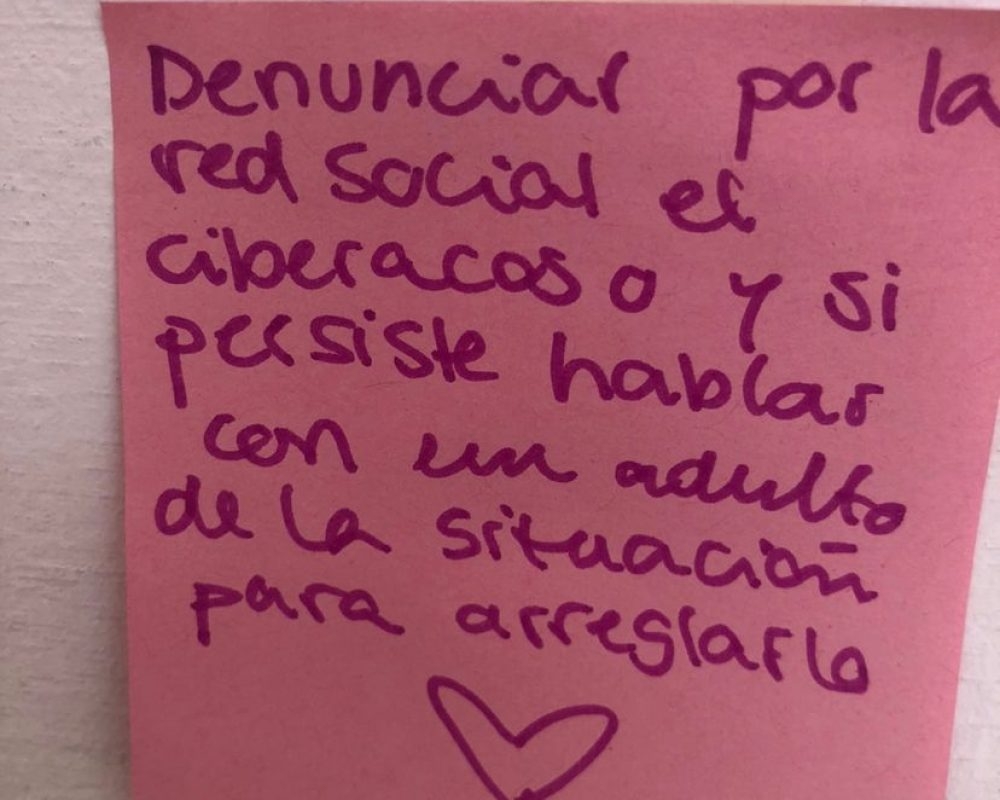 Denunciar por la
red social el
ciberacoso y si
persiste hablar
con un adulto
de la situación
para arreglarlo